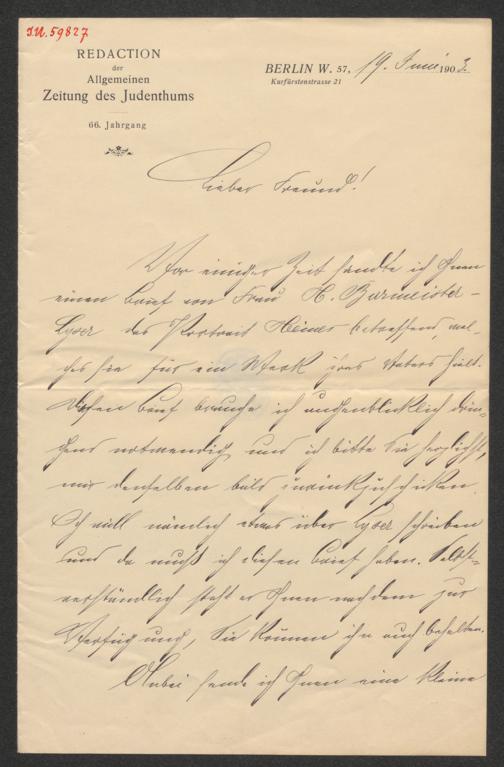 I.N. 59827
REDACTION
der
Allgemeinen
Zeitung des Judenthums
66. Jahrgang
BERLIN W. 57, 19. Juni 1903.
Kurfürstenstrasse 21
Lieber Freund!
Vor einiger Zeit sandte ich Ihnen
einen Brief von Frau H. Burmeister-
Lyser das Portrait Heines betreffend, wel-
ches sie für ein Werk ihres Vaters hält.
Diesen Brief brauche ich augenblicklich drin-
gend notwendig und ich bitte Sie herzlichst,
mir denselben bald zurückzuschicken.
Ich will nämlich etwas über Lyser schreiben
und da muß ich diesen Brief haben. Selbst-
verständlich steht er Ihnen nachdem zur
Verfügung, Sie können ihn auch behalten.
Anbei sende ich Ihnen eine kleine